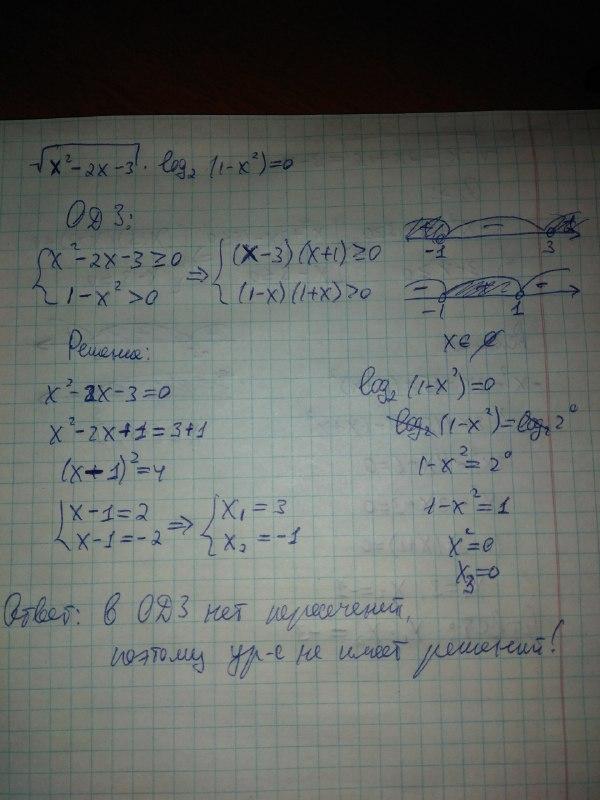 √(x²-2x-3) · log₂ (1-x²)=0
ОДЗ:
{x²-2x-3≥0 ⇒ {(x-3)(x+1)≥0
{1-x²>0 {(1-x)(1+x)>0
+ - +
-1 3
- + -
-1 1
x∈∅
Решение:
x²-2x-3=0
x²-2x+1=3+1
(x-1)²=4
{x-1=2 ⇒ {x₁=3
{x-1=-2 {x₂=-1
log₂ (1-x²)=0
log₂ (1-x²)=log₂ 2⁰
1-x²=2⁰
1-x²=1
x²=0
x₃=0
Ответ: в ОДЗ нет пересечений,
поэтому ур-е не имеет решений!